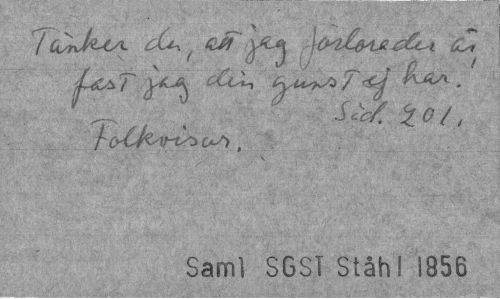 Tänker du, att jag förlorader är,
fast jag din gunst ej har.
Sid. 201.
Folkvisor.
Saml SGST Ståhl 1856